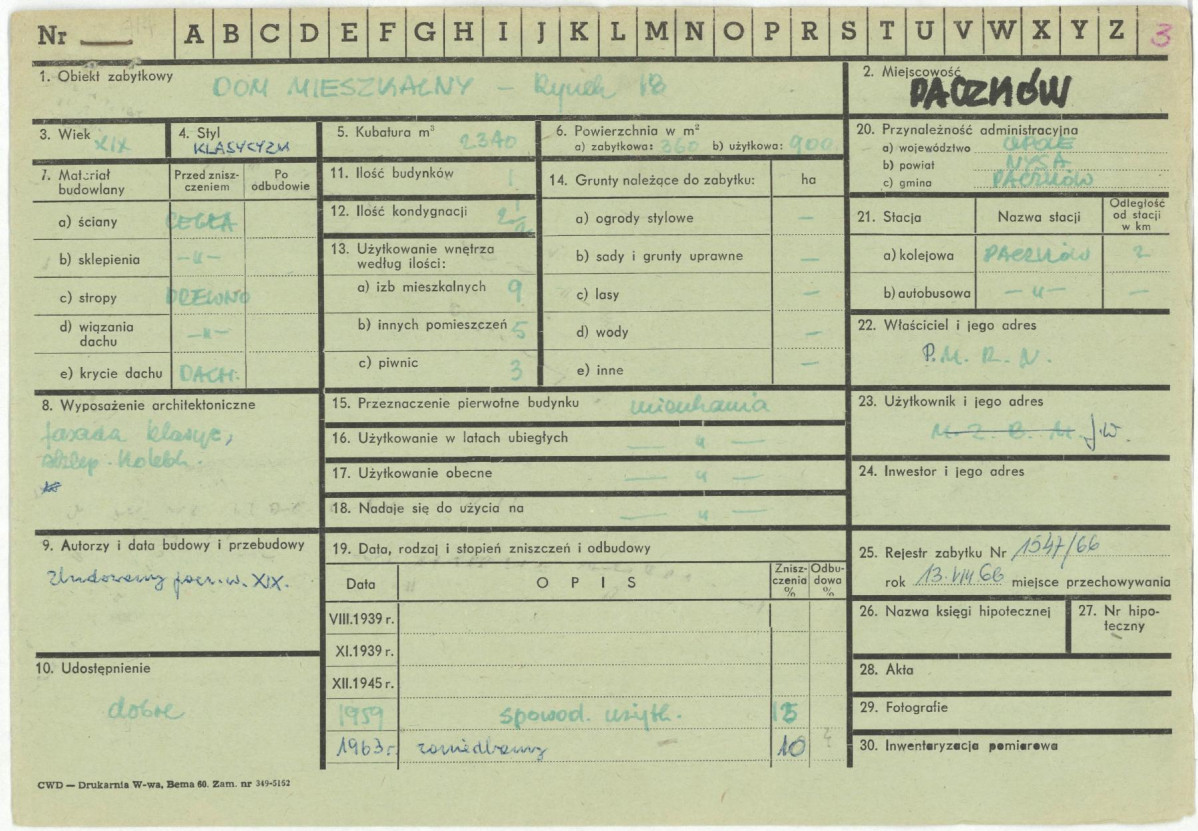 Nr A B C D E F G H I J K L M N O P R S T U V W X Y Z 3
1. Obiekt zabytkowy DOM MIESZKALNY – Rynek 18
2. Miejscowość PACZKÓW
3. Wiek XIX
4. Styl KLASYCYZM
5. Kubatura m³ 2340
6. Powierzchnia w m²
a) zabytkowa: 360 b) użytkowa: 900
7. Materiał budowlany
Przed zniszczeniem
Po odbudowie
a) ściany CEGŁA
b) sklepienia –"–
c) stropy DRZEWNO
d) wiązania dachu –"–
e) krycie dachu DACH.
8. Wyposażenie architektoniczne
fasada klasyc,
sklep. kolebk.
9. Autorzy i data budowy i przebudowy
Zbudowany pocz. w. XIX.
10. Udostępnienie
dobre
11. Ilość budynków 1
12. Ilość kondygnacji
13. Użytkowanie wnętrza według ilości:
a) izb mieszkalnych 9
b) innych pomieszczeń 5
c) piwnic 3
14. Grunty należące do zabytku: ha
a) ogrody stylowe –
b) sady i grunty uprawne –
c) lasy –
d) wody –
e) inne –
15. Przeznaczenie pierwotne budynku mieszkania
16. Użytkowanie w latach ubiegłych — " —
17. Użytkowanie obecne — " —
18. Nadaje się do użycia na — " —
19. Data, rodzaj i stopień zniszczeń i odbudowy
Data OPIS Zniszczenia % Odbudowa %
VIII.1939 r.
XI.1939 r.
XII.1945 r.
1959 spowod. użytk. 15
1963 r. zaniedbany 10
20. Przynależność administracyjna
a) województwo OPOLE
b) powiat NYSA
c) gmina PACZKÓW
21. Stacja Nazwa stacji Odległość od stacji w km
a) kolejowa PACZKÓW 2
b) autobusowa –"– –
22. Właściciel i jego adres
P.M.R.N.
23. Użytkownik i jego adres
M.Z.B.M. j.w.
24. Inwestor i jego adres
25. Rejestr zabytku Nr 1547/66
rok 13.VIII 66 miejsce przechowywania
26. Nazwa księgi hipotecznej
27. Nr hipoteczny
28. Akta
29. Fotografie
30. Inwentaryzacja pomiarowa
CWD — Drukarnia W-wa, Bema 60. Zam. nr 349-5162